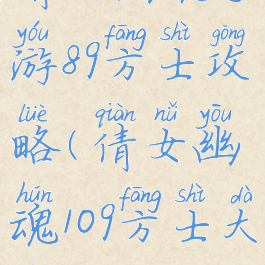 yóu fāng shì gōng
游89方士攻
lüè qiàn nǚ yōu
略(倩女幽
hún fāng shì dà
魂109方士大